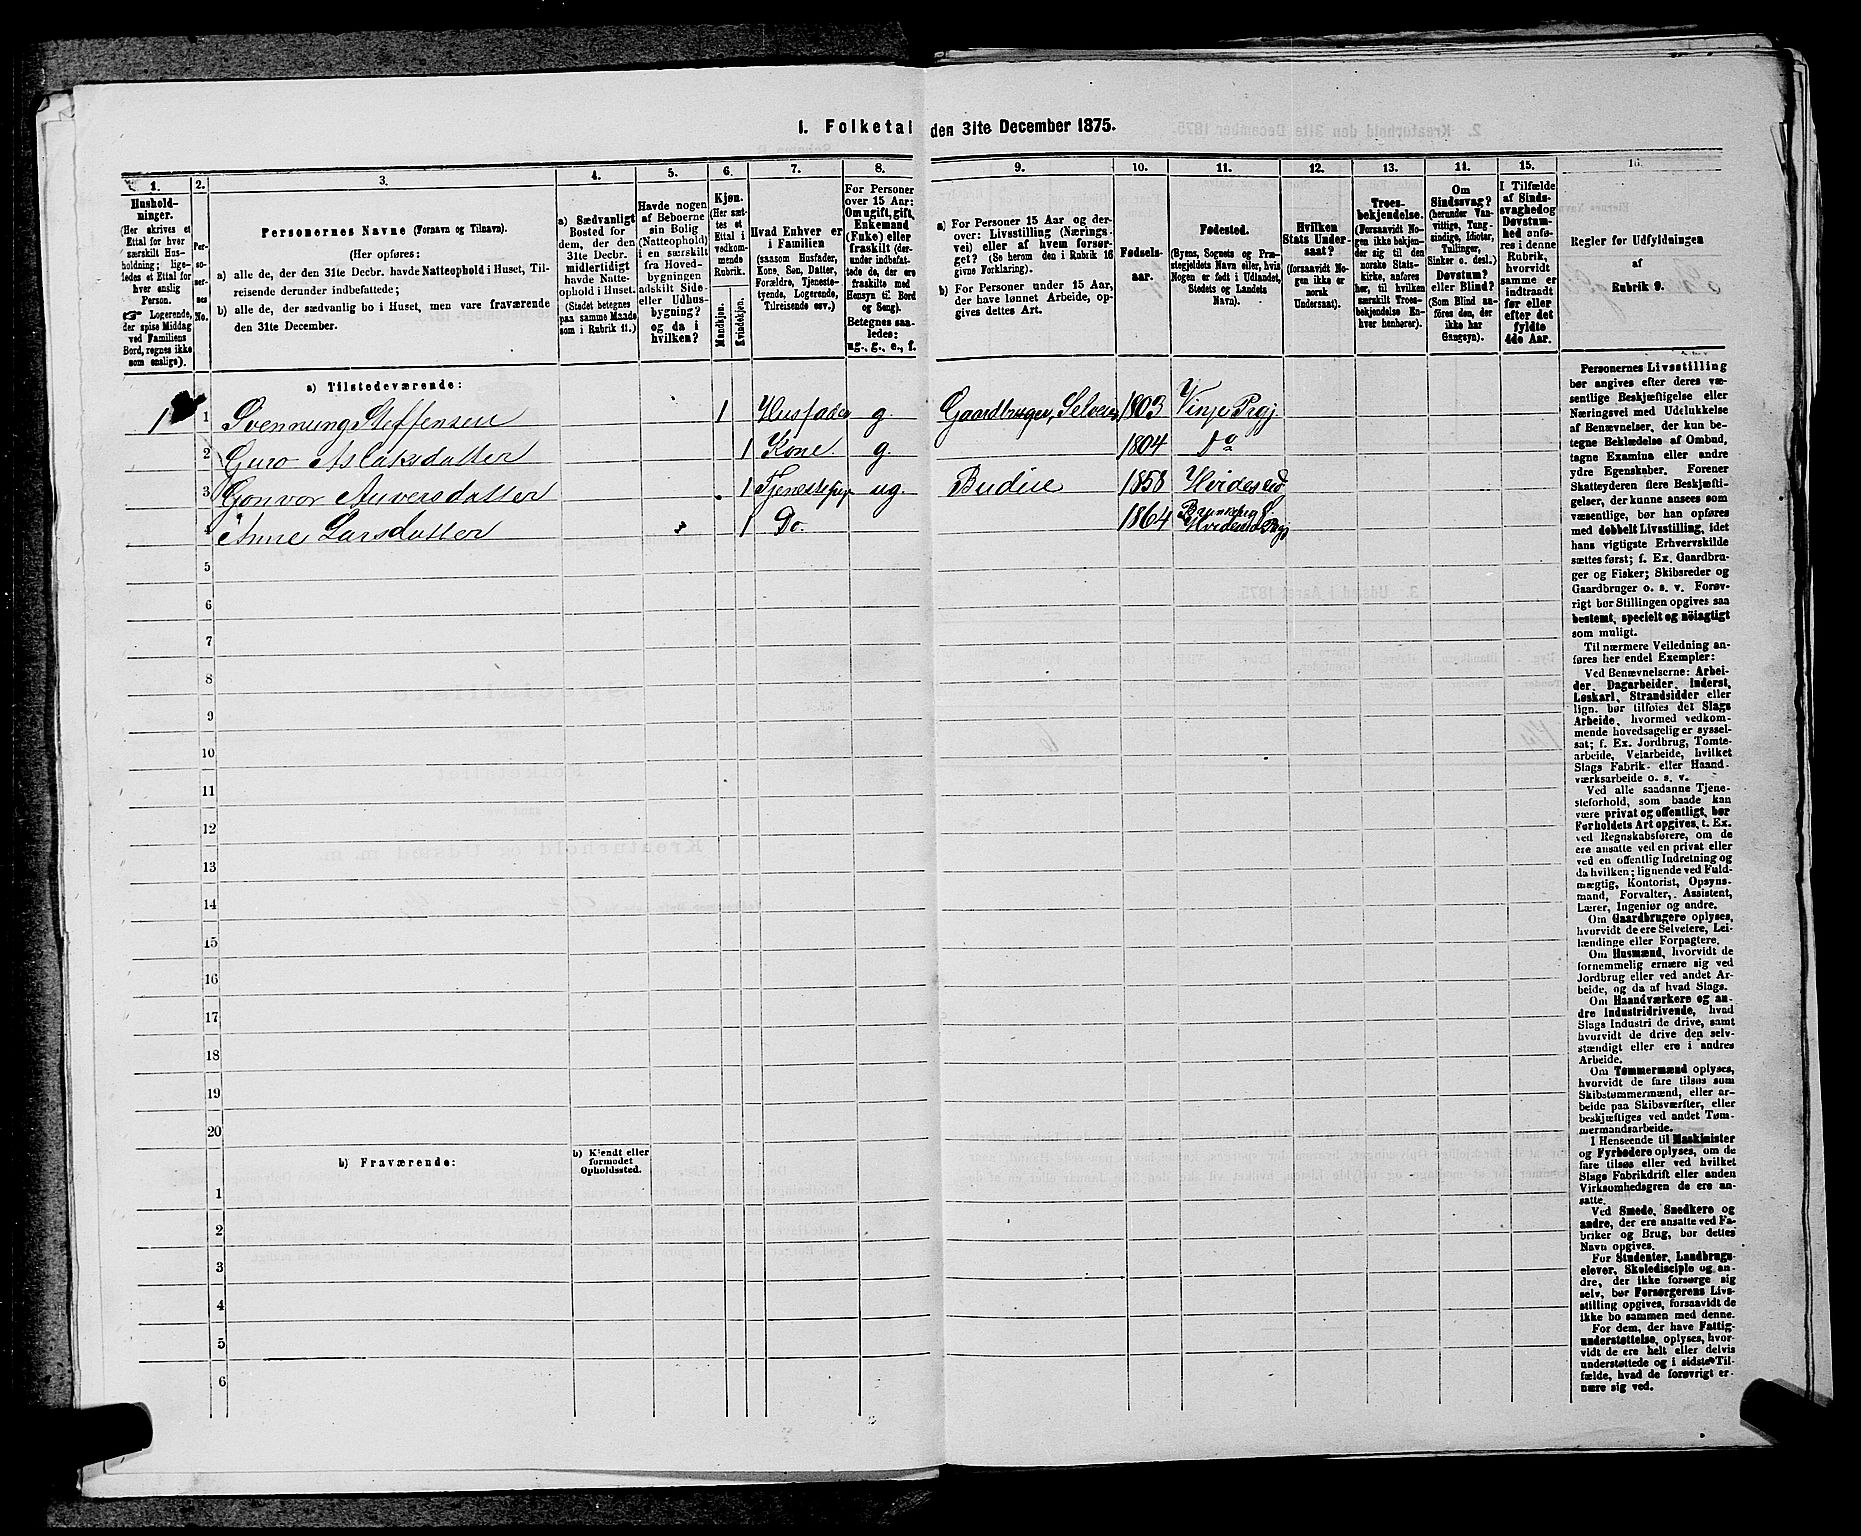 1. Folketal den 31te December 1875.
1.
Hushold-
ninger.
(Her skrives et
Ettal for hver
særskilt Hus-
holdning; lige-
ledes et Ettal for
hver enslig
Person.
☞ Logerende,
der spise Middag
ved Familiens
Bord, regnes ikke
som enslige).
2.
Per-
so-
ner-
nes
No.
3.
Personernes Navne (Fornavn og Tilnavn).
(Her opføres:
a) alle de, der den 31te Decbr. havde Natteophold i Huset, Til-
reisende derunder indbefattede;
b) alle de, der sædvanlig bo i Huset, men vare fraværende
den 31te December.
4.
a) Sædvanligt
Bosted for
dem, der den
31te Decbr.
midlertidigt
havde Natte-
ophold i Huset.
(Stedet betegnes
paa samme Maade
som i Rubrik 11.)
5.
Havde nogen
af Beboerne
sin Bolig
(Natteophold)
i en særskilt
fra Hoved-
bygningen
adskilt Side-
eller Udhus-
bygning?
og da i
hvilken?
6.
Kjøn.
(Her sæt-
tes et
Ettal i
vedkom-
mende
Rubrik.
Mandkjøn.
Kvindekjøn.
7.
Hvad Enhver er
i Familien
(saasom Husfader,
Kone, Søn, Datter,
Forældre, Tjeneste-
tyende, Logerende,
Tilreisende osv.)
8.
For Personer
over 15 Aar:
Om ugift, gift,
Enkemand
(Enke) eller
fraskilt (der-
under indbefat-
tede de, der ere
fraskilte med
Hensyn til Bord
og Seng).
Betegnes saa-
ledes:
ug., g., e., f.
9.
a) For Personer 15 Aar og der-
over: Livsstilling (Nærings-
vei) eller af hvem forsør-
get? (Se herom den i Rubrik 16
givne Forklaring).
b) For Personer under 15 Aar,
der have lønnet Arbeide, op-
gives dettes Art.
10.
Fødsels-
aar.
11.
Fødested.
(Byens, Sognets og Præ-
stegjeldets Navn eller, hvis
Nogen er født i Udlandet,
Stedets og Landets
Navn).
12.
Hvilken
Stats Under-
saat?
(forsaavidt No-
gen ikke er
norsk
Undersaat).
13.
Troes-
bekjendelse.
(Forsaavidt No-
gen ikke bekjen-
der sig til den
norske Stats-
kirke, anføres
her, til hvilken
særskilt Troes-
bekjendelse En-
hver henhører).
14.
Om
Sindssvag?
(herunder Van-
vittige, Tung-
sindige, Idioter,
Tullinger,
Sinker o. desl.)
Døvstum?
eller Blind?
(Som Blind an-
føres den, der
ikke har
Gangsyn).
15.
I Tilfælde
af Sinds-
svaghed og
Døvstum-
hed anfø-
res i denne
Rubrik,
hvorvidt
samme er
indtraadt
før eller
efter det
fyldte
4de Aar.
16.
Regler for Udfyldningen
af
Rubrik 9.
a) Tilstedeværende:
1 1 Svennung Steffensen 1 Husfader g. Gaardbruger, Selveier 1803 Vinje Prgj.
2 Guro Aslaksdatter 1 Kone g. 1804 do
3 Gonvor Anversdatter 1 Tjenestepige ug. Budeie 1858 Hvideseid
4 Anne Larsdatter 1 Do. 1864 Brunkeberg S. Hvideseid Prgj
5
6
7
8
9
10
11
12
13
14
15
16
17
18
19
20
b) Fraværende:
b) Kjendt eller
formodet
Opholdssted.
1
2
3
4
5
6
Personernes Livsstilling
bør angives efter deres væ-
sentlige Beskjæftigelse eller
Næringsvei med Udelukkelse
af Benævnelser, der kun be-
tegne Beklædelse af Ombud,
tagne Examina eller andre
ydre Egenskaber. Forener
Skatteyderen flere Beskjæfti-
gelser, der kunne ansees som
væsentlige, bør han opføres
med dobbelt Livsstilling, idet
hans vigtigste Erhvervskilde
sættes først; f. Ex. Gaardbru-
ger og Fisker; Skibsreder og
Gaardbruger o. s. v. Forøv-
rigt bør Stillingen opgives saa
bestemt, specielt og nöiagtigt
som muligt.
Til nærmere Veiledning an-
føres her endel Exempler:
Ved Benævnelserne: Arbei-
der, Dagarbeider, Inderst,
Løskarl, Strandsidder eller
lign. bør tilføies det Slags
Arbeide, hvormed vedkom-
mende hovedsagelig er syssel-
sat; f. Ex. Jordbrug, Tomte-
arbeide, Veiarbeide, hvilket
Slags Fabrik- eller Haand-
værksarbeide o. s. v.
Ved alle saadanne Tjene-
steforhold, som baade kan
være privat og offentligt, bør
Forholdets Art opgives, t. Ex.
ved Regnskabsførere, om de
ere ansatte ved en privat eller
ved en offentlig Indretning og
da hvilken; lignende ved Fuld-
mægtig, Kontorist, Opsyns-
mand, Forvalter, Assistent,
Lærer, Ingeniør og andre.
Om Gaardbrugere oplyses,
hvorvidt de ere Selveiere, Lei-
lændinge eller Forpagtere.
Om Husmænd, hvorvidt de
fornemmelig ernære sig ved
Jordbrug eller ved andet Ar-
beide, og da af hvad Slags.
Om Haandværkere og an-
dre industridrivende, hvad
Slags Industri de drive, samt
hvorvidt de drive den selv-
stændigt eller ere i andres
Arbeide.
Om Tømmermænd oplyses,
hvorvidt de fare tilsøs som
Skibstømmermænd, eller ar-
beide paa Skibsværfter, eller
beskjæftiges ved andet Tøm-
mermandsarbeide.
I Henseende til Maskinister
og Fyrbødere oplyses, om de
fare tilsøs eller ved hvilket
Slags Fabrikdrift eller anden
Virksomhedsgren de ere an-
satte.
Ved Smede, Snedkere og
andre, der ere ansatte ved Fa-
briker og Brug, bør dettes
Navn opgives.
For Studenter, Landbrugs-
elever, Skoledisciple og an-
dre, der ikke forsørge sig
selv, bør Forsørgerens Livs-
stilling opgives, forsaavidt de
ikke bo sammen med denne.
For dem, der have Fattig-
understøttelse, oplyses, hvor-
vidt de ere helt eller delvis
understøttede og i sidste Til-
fælde, hvad de forøvrigt er-
nære sig ved.